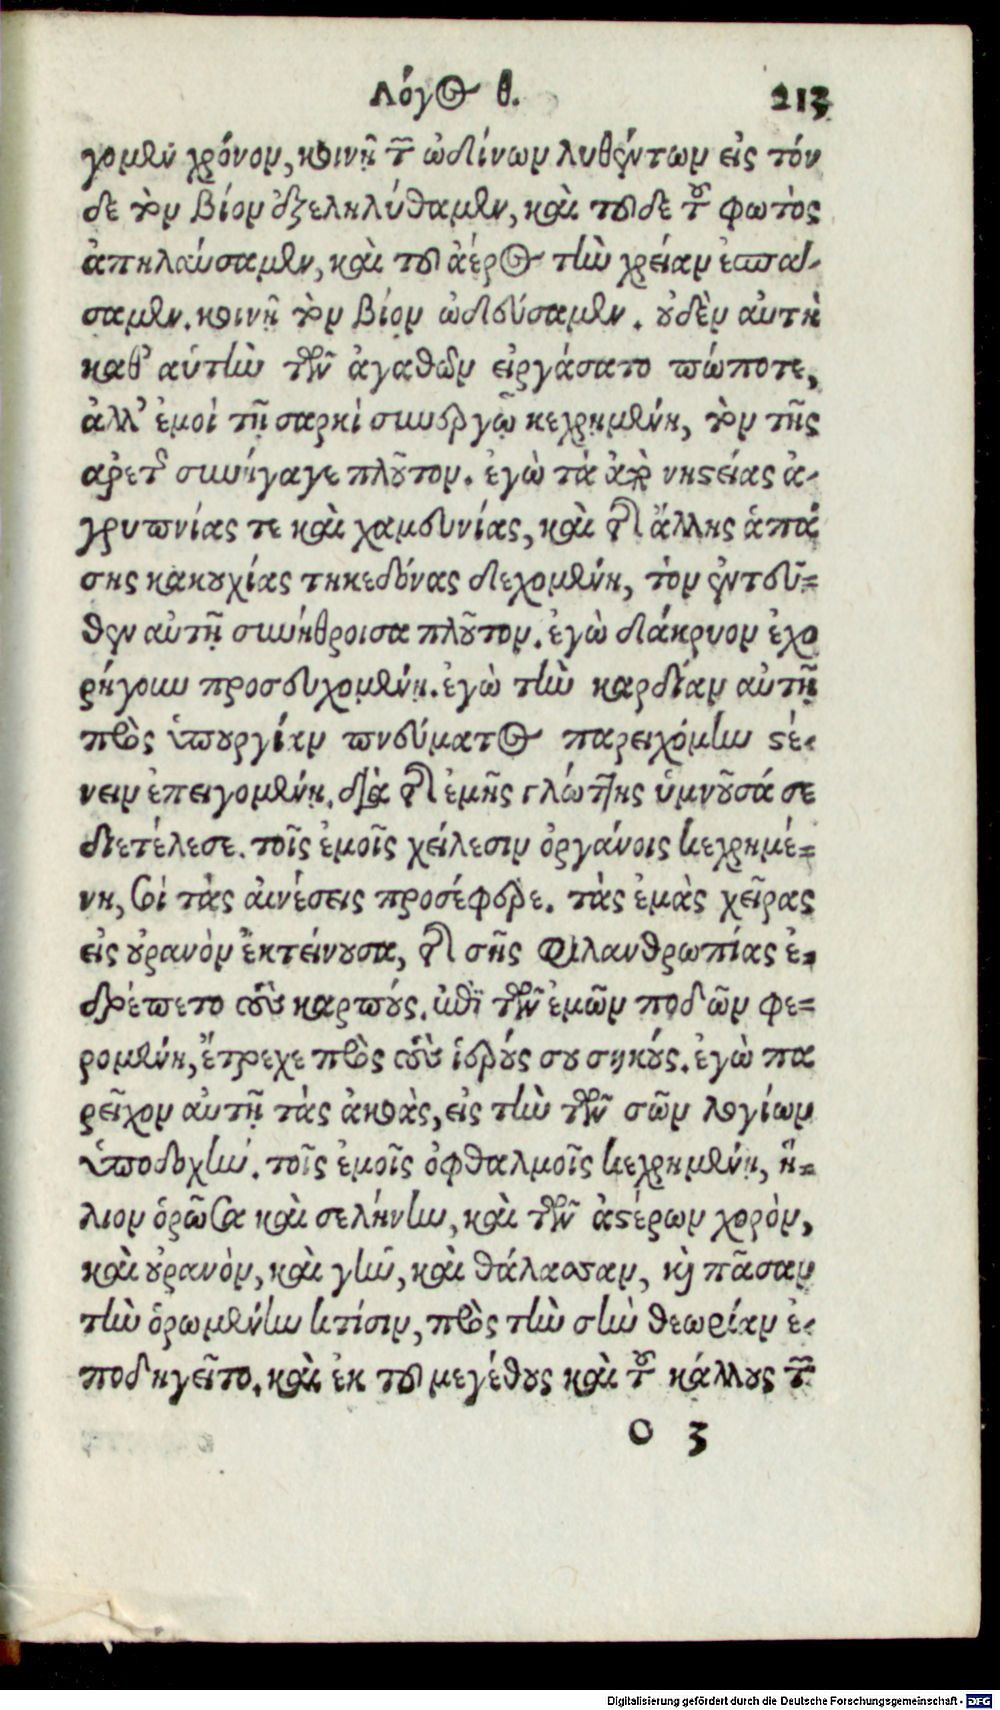 Λόγος θ. 213
γομεν χρόνον, κοινῇ τῶν ὠδίνων λυθέντων εἰς τόν
δε τὸν βίον ἐξεληλύθαμεν, καὶ τοῦδε τοῦ φωτὸς
ἀπηλαύσαμεν, καὶ τοῦ ἀέρος τὴν χρείαν ἐσπά-
σαμεν. κοινῇ τὸν βίον ὡδεύσαμεν. οὐδὲν αὐτὴ
καθ' αὑτὴν τῶν ἀγαθῶν εἰργάσατο πώποτε,
ἀλλ' ἐμοὶ τῇ σαρκὶ συνεργῷ κεχρημένη, τὸν τῆς
ἀρετῆς συνήγαγε πλοῦτον. ἐγὼ τὰ ἀπὸ νηστείας ἀ-
γρυπνίας τε καὶ χαμευνίας, καὶ τῆς ἄλλης ἁπά
σης κακουχίας τηκεδόνας δεχομένη, τὸν ἐντεῦ-
θεν αὐτῇ συνήθροισα πλοῦτον. ἐγὼ δάκρυον ἐχο
ρήγουν προσευχομένῃ. ἐγὼ τὴν καρδίαν αὐτῇ
πρὸς ὑπουργίαν πνεύματος παρειχόμην στέ-
νειν ἐπειγομένῃ. διὰ τῆς ἐμῆς γλώττης ὑμνοῦσά σε
διετέλεσε. τοῖς ἐμοῖς χείλεσιν ὀργάνοις κεχρημέ-
νη, σοὶ τὰς αἰνέσεις προσέφερε. τὰς ἐμὰς χεῖρας
εἰς οὐρανὸν ἐκτείνουσα, τῆς σῆς φιλανθρωπίας ἐ-
δρέπετο τοὺς καρπούς. ἐπὶ τῶν ἐμῶν ποδῶν φε-
ρομένη, ἔτρεχε πρὸς τοὺς ἱερούς σου σηκούς. ἐγὼ πα
ρεῖχον αὐτῇ τὰς ἀκοὰς, εἰς τὴν τῶν σῶν λογίων
ὑποδοχήν. τοῖς ἐμοῖς ὀφθαλμοῖς κεχρημένη, ἥ-
λιον ὁρῶσα καὶ σελήνην, καὶ τῶν ἀστέρων χορὸν,
καὶ οὐρανὸν, καὶ γῆν, καὶ θάλασσαν, καὶ πᾶσαν
τὴν ὁρωμένην κτίσιν, πρὸς τὴν σὴν θεωρίαν ἐ-
ποδηγεῖτο. καὶ ἐκ τοῦ μεγέθους καὶ τοῦ κάλλους τῶν
O 3
Digitalisierung gefördert durch die Deutsche Forschungsgemeinschaft - DFG